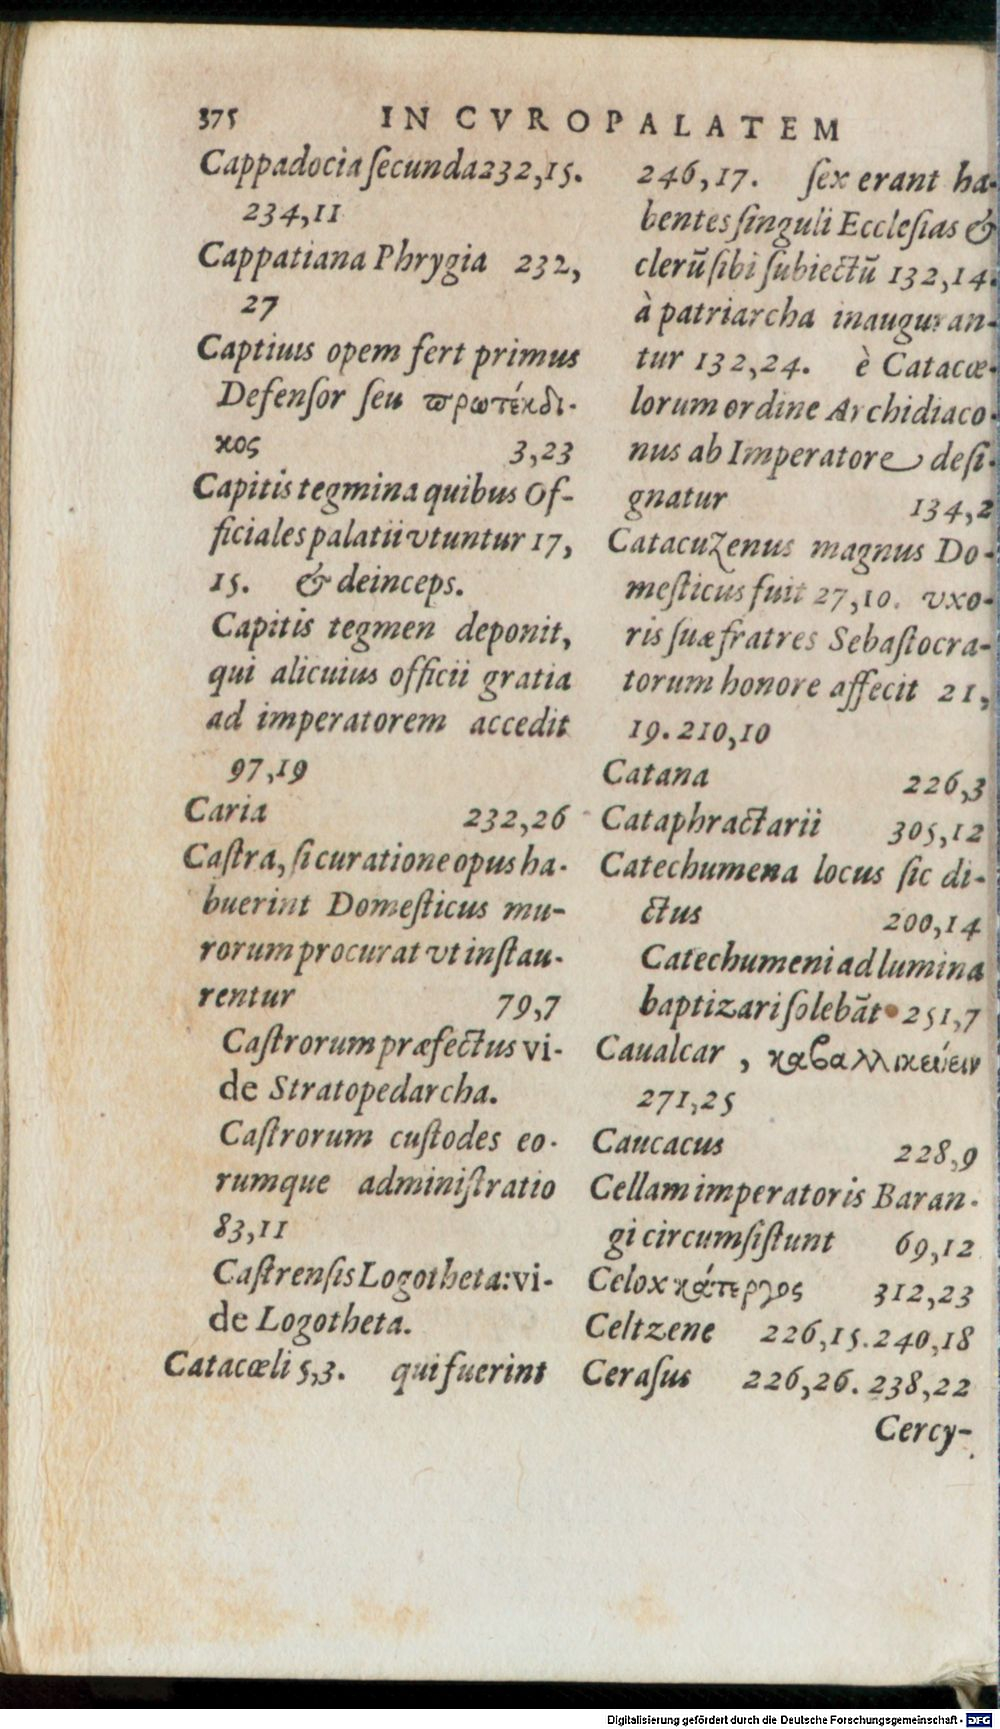 375 IN CVROPALATEM
Cappadocia ſecunda 232,15.
234,11
Cappatiana Phrygia 232,
27
Captiuis opem fert primus
Defenſor ſeu πρωτέκδι-
κος 3,23
Capitis tegmina quibus Of-
ficiales palatii vtuntur 17,
15. & deinceps.
Capitis tegmen deponit,
qui alicuius officii gratia
ad imperatorem accedit
97,19
Caria 232,26
Caſtra, ſi curatione opus ha-
buerint Domeſticus mu-
rorum procurat vt inſtau-
rentur 79,7
Caſtrorum præfectus vi-
de Stratopedarcha.
Caſtrorum cuſtodes eo-
rumque adminiſtratio
83,11
Caſtrenſis Logotheta: vi-
de Logotheta.
Catacœli 5,3. qui fuerint
246,17. ſex erant ha-
bentes ſinguli Eccleſias &
clerū ſibi ſubiectū 132,14.
à patriarcha inauguran-
tur 132,24. è Catacœ-
lorum ordine Archidiaco-
nus ab Imperatore deſi-
gnatur 134,2
Catacuzenus magnus Do-
meſticus fuit 27,10. vxo-
ris ſuæ fratres Sebaſtocra-
torum honore affecit 21,
19. 210,10
Catana 226,3
Cataphractarii 305,12
Catechumena locus ſic di-
ctus 200,14
Catechumeni ad lumina
baptizari ſolebāt 251,7
Caualcar, καβαλλικεύειν
271,25
Caucacus 228,9
Cellam imperatoris Baran-
gi circumſiſtunt 69,12
Celox κάτεργος 312,23
Celtzene 226,15. 240,18
Ceraſus 226,26. 238,22
Cercy-
Digitalisierung gefördert durch die Deutsche Forschungsgemeinschaft - DFG